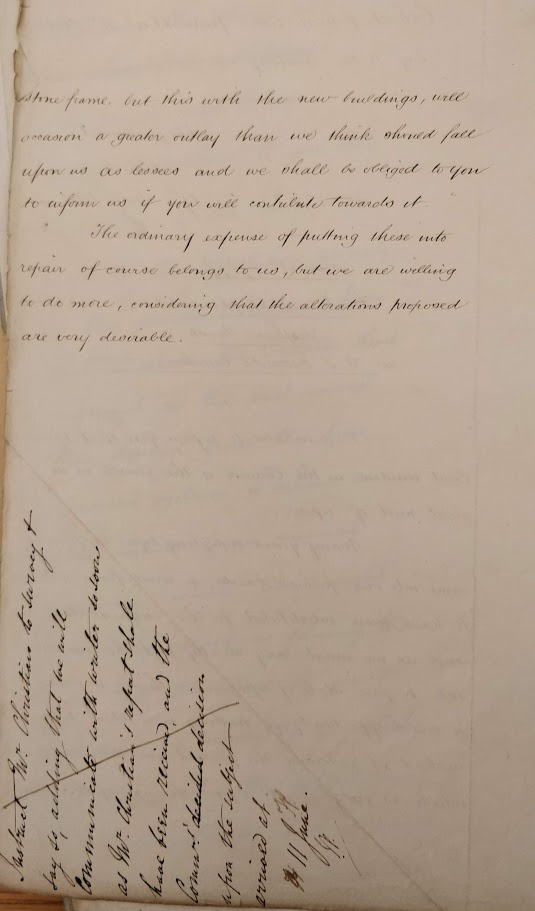 stone frame. but this with the new buildings, will
occasion a greater outlay than we think should fall
upon us as lessees and we shall be obliged to you
to inform us if you will contribute towards it.
The ordinary expense of putting these into
repair of course belongs to us, but we are willing
to do more, considering that the alterations proposed
are very desirable.
Instruct Mr. Christian to survey &
say so, adding that we will
Communicate with writer so soon
as Mr. Christian's report shall
have been received, and the
Comrs. decided decision
upon the subject
arrived at
11 June.